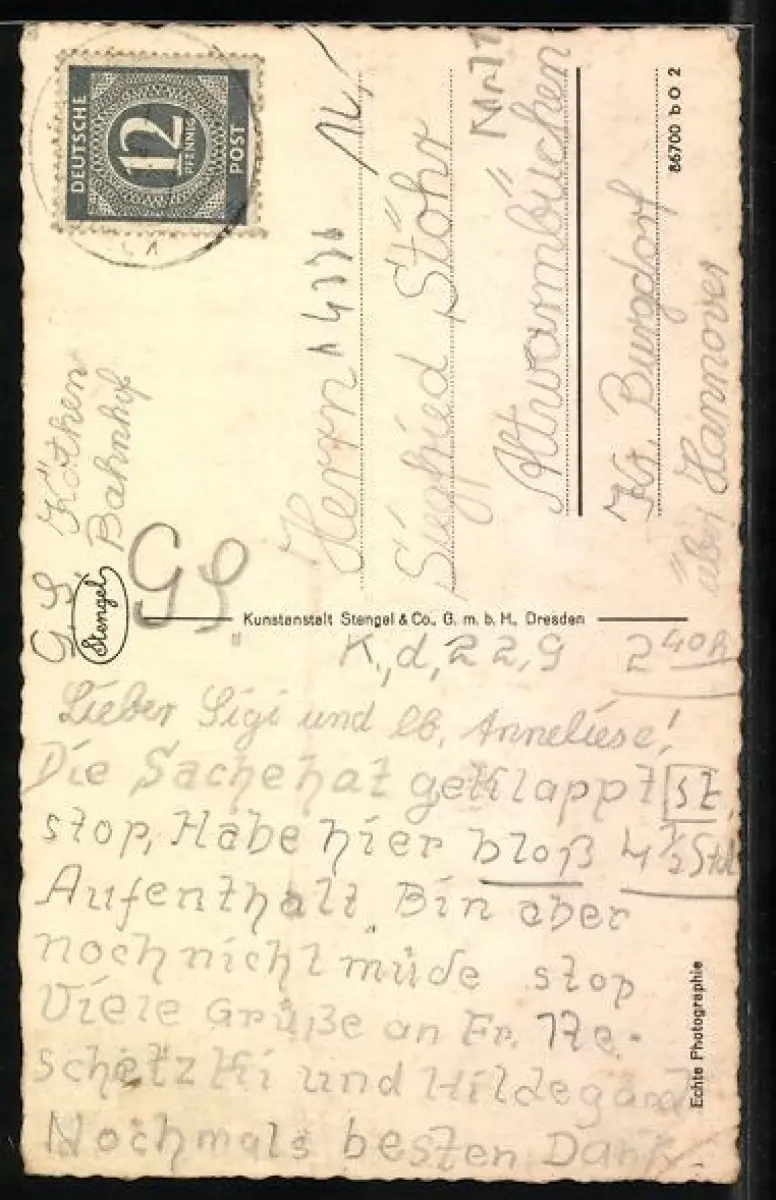 DEUTSCHE
12
PFENNIG
POST
Köthen
Bahnhof
GS
G S
Stengel
Herrn
Siegfried Stöhr
Altwarmbüchen
Kr. Burgdorf
über Hannover
86700 b O 2
Kunstanstalt Stengel & Co., G. m. b. H., Dresden
K., d, 22, 9 2 40 h
Lieber Sigi und lb. Anneliese!
Die Sache hat geklappt st.
stop, Habe hier bloß 4 1/2 Std
Aufenthalt. Bin aber
noch nicht müde stop
Viele Grüße an Fr.
und Hildegard
Nochmals besten Dank.
Echte Photographie